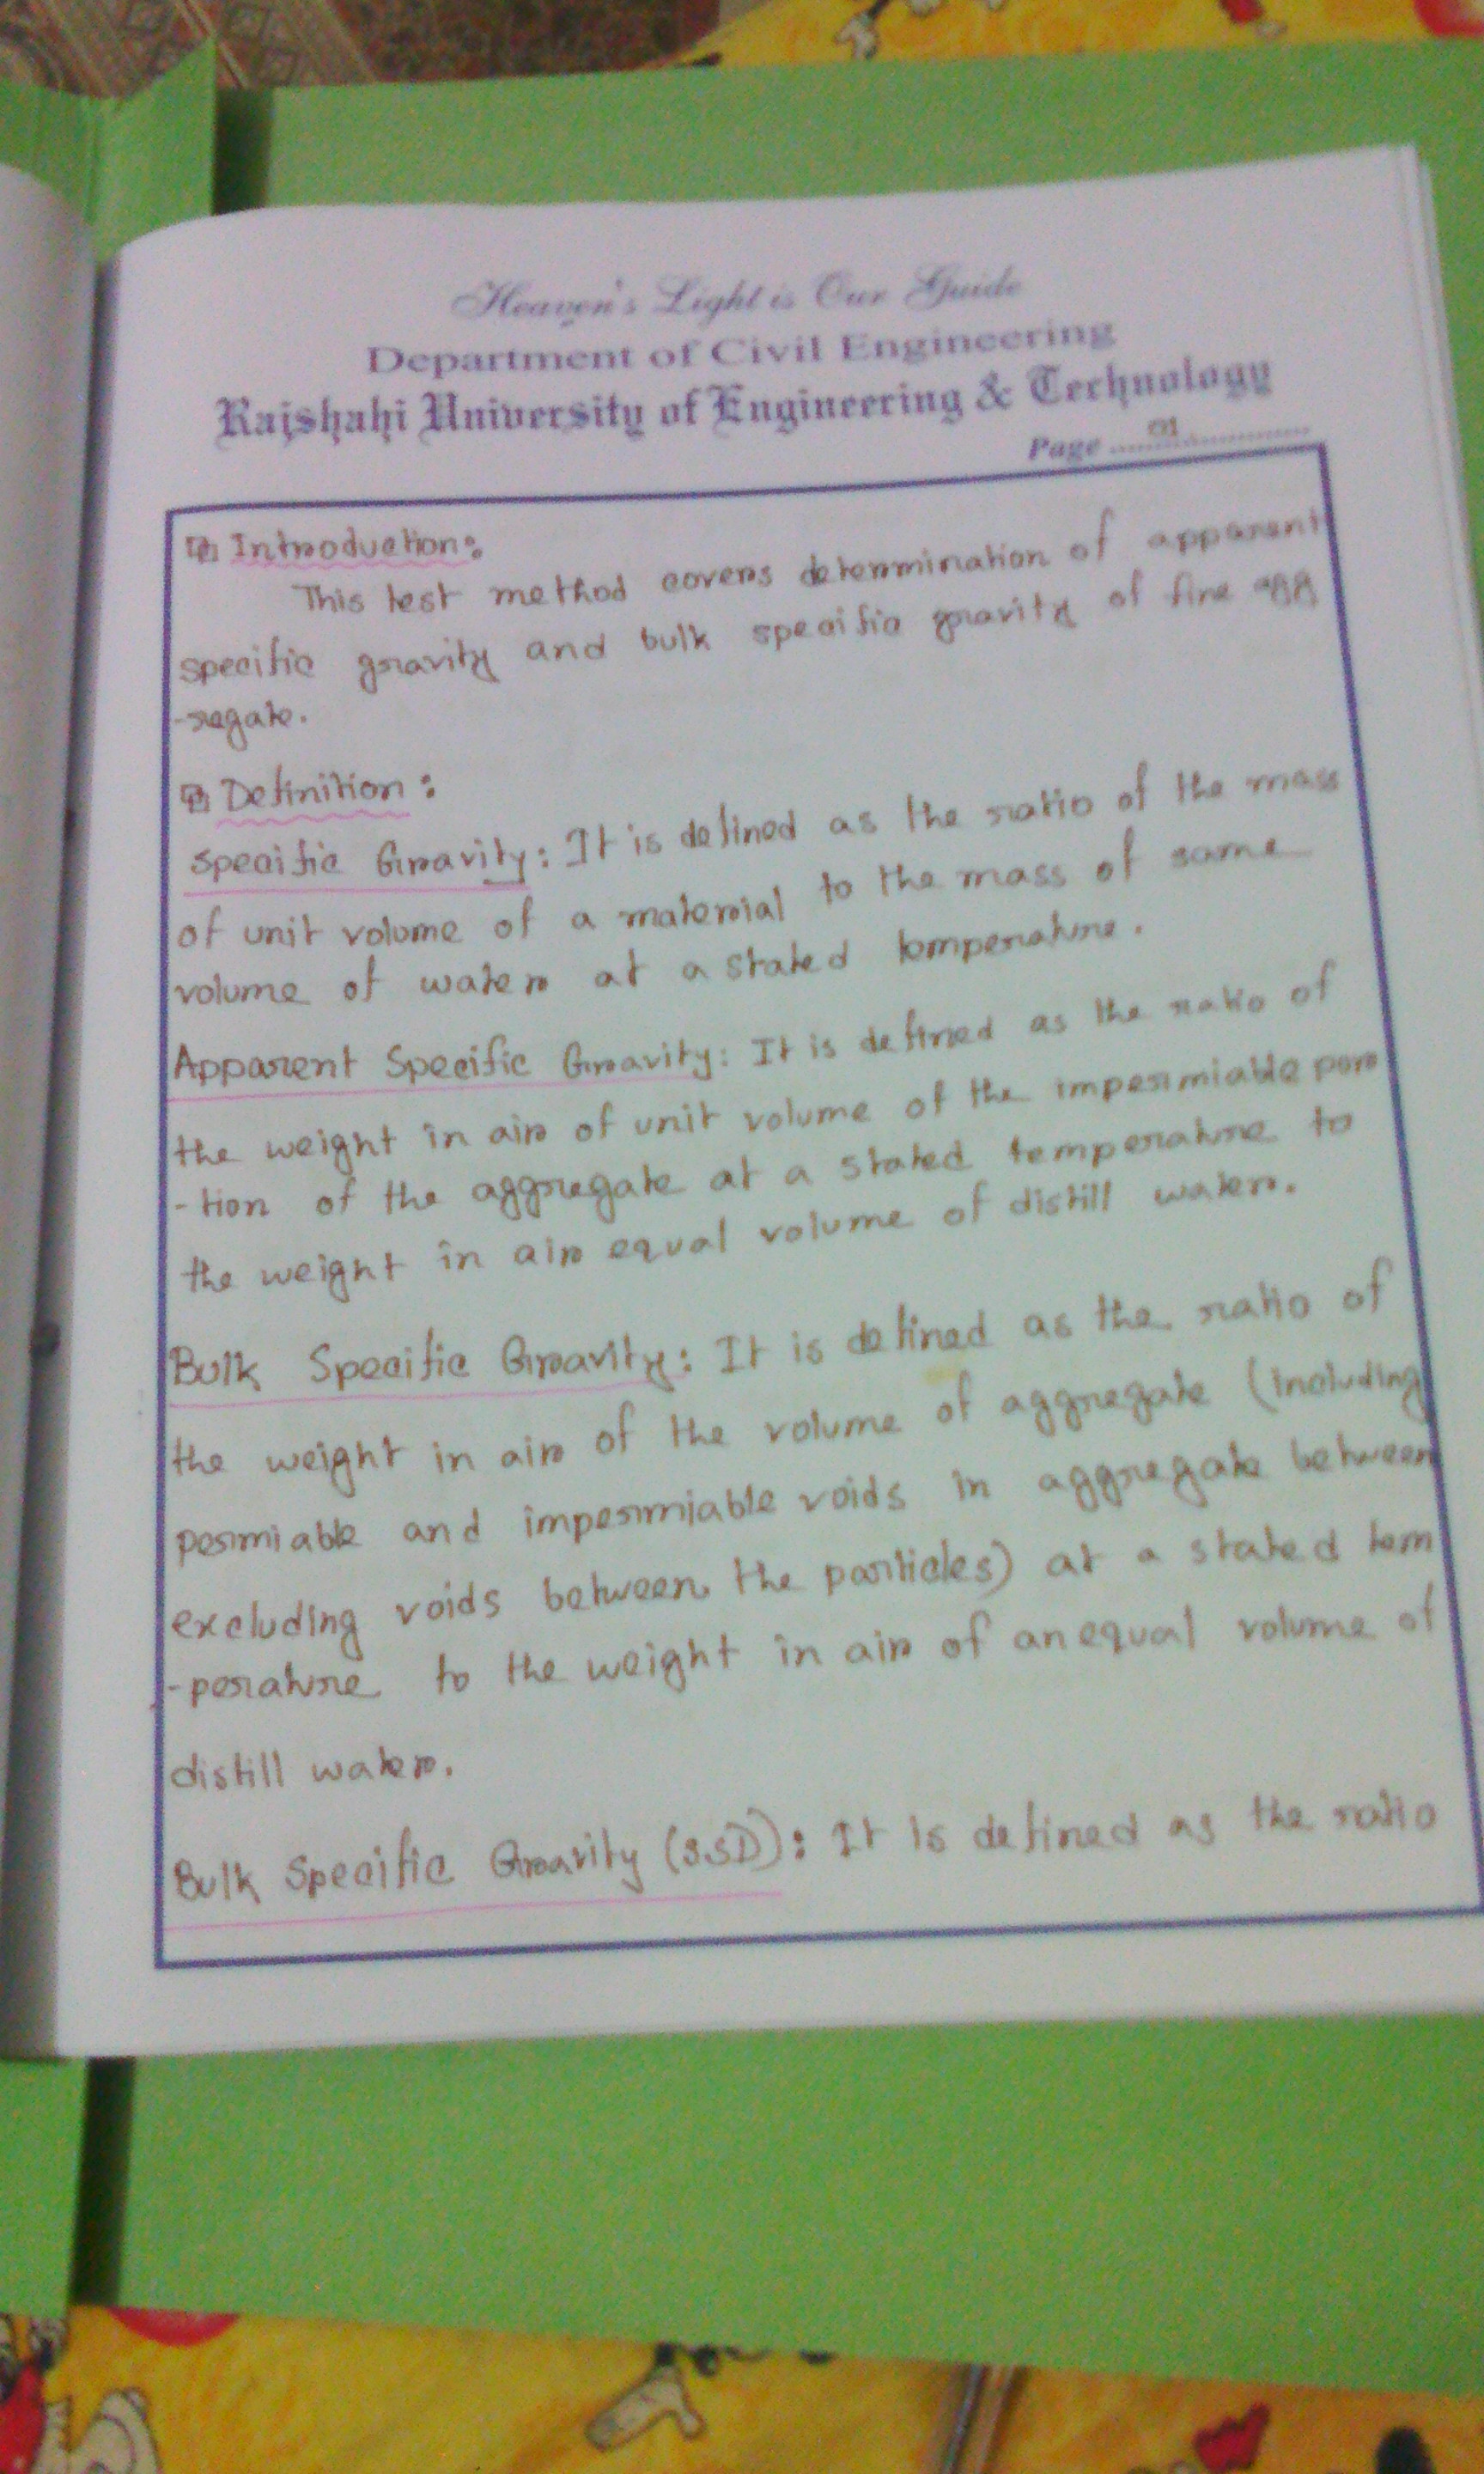 Heaven's Light is Our Guide
Department of Civil Engineering
Rajshahi University of Engineering & Technology
Page 01
Introduction:
This test method covers determination of apparent
specific gravity and bulk specific gravity of fine agg
-regate.
Definition:
Specific Gravity: It is defined as the ratio of the mass
of unit volume of a material to the mass of same
volume of water at a stated temperature.
Apparent Specific Gravity: It is defined as the ratio of
the weight in air of unit volume of the impermiable por
-tion of the aggregate at a stated temperature to
the weight in air equal volume of distill water.
Bulk Specific Gravity: It is defined as the ratio of
the weight in air of the volume of aggregate (including
permiable and impermiable voids in aggregate between
excluding voids between the particles) at a stated tem
-perature to the weight in air of an equal volume of
distill water.
Bulk Specific Gravity (SSD): It is defined as the ratio